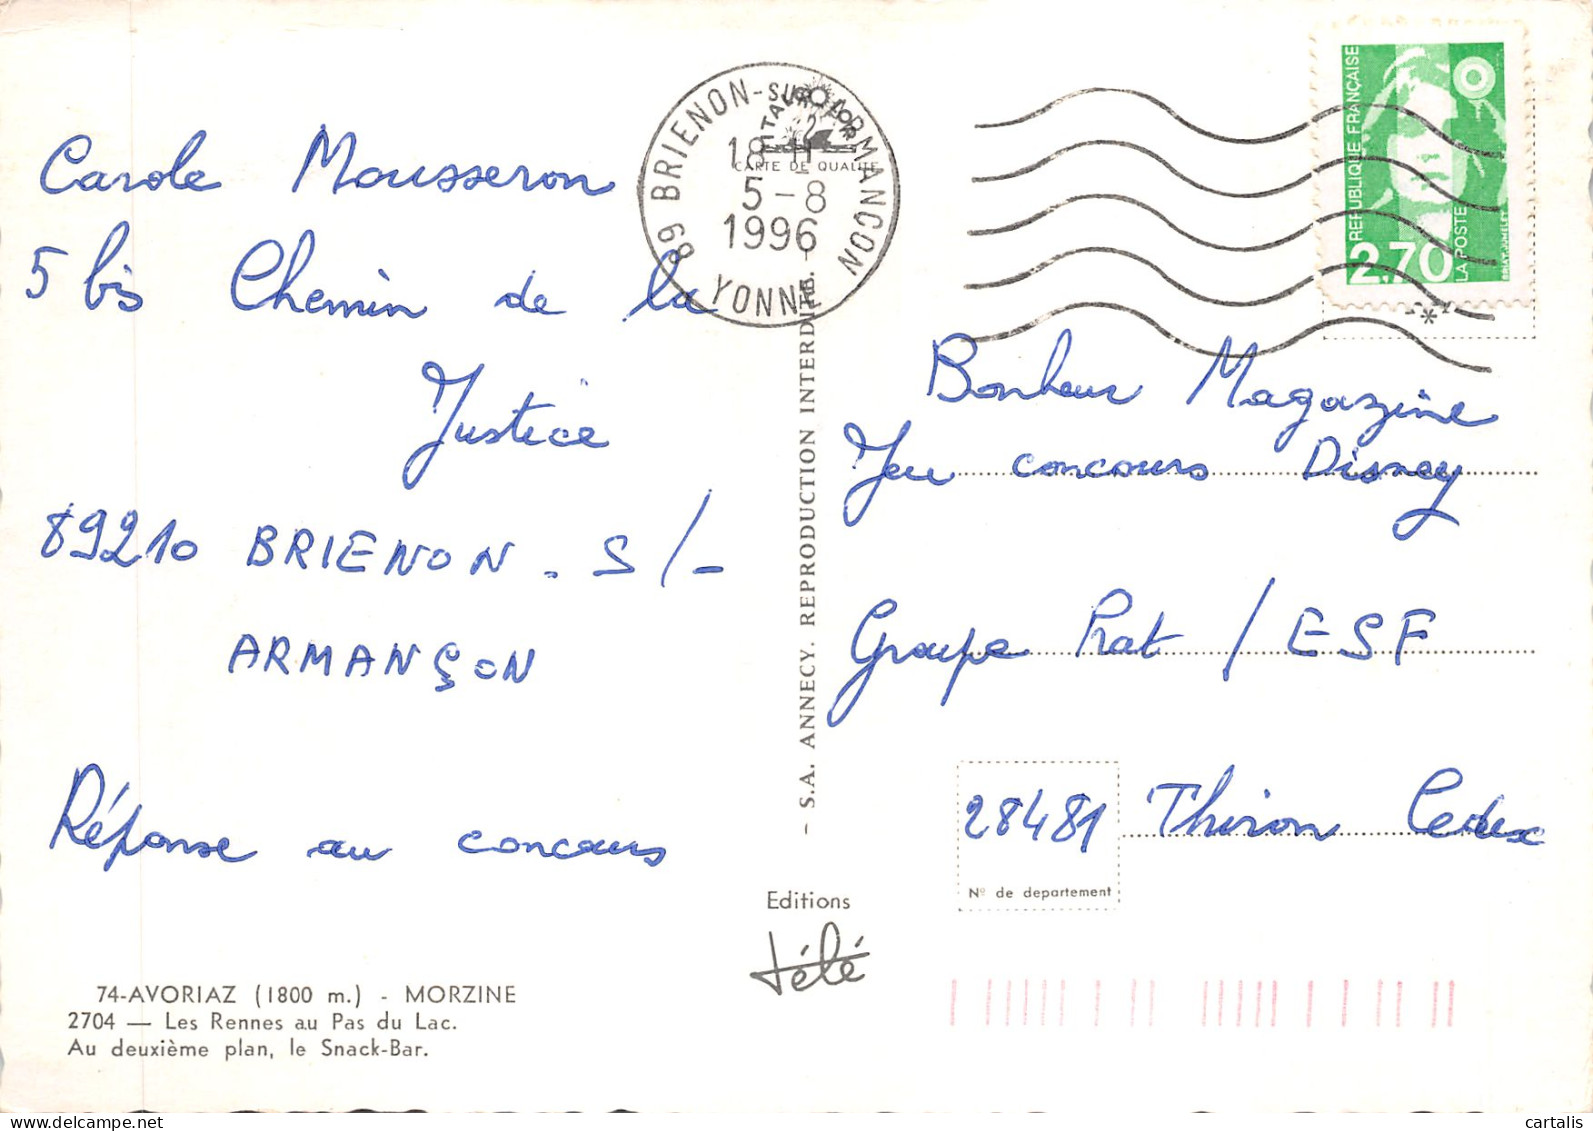 Carole Mousseron
5 bis Chemin de la
Justice
89210 BRIENON . S/-
ARMANÇON
Réponse au concours
74-AVORIAZ (1800 m.) - MORZINE
2704 — Les Rennes au Pas du Lac.
Au deuxième plan, le Snack-Bar.
89 BRIENON-SUR-ARMANÇON
18 H
5-8
1996
YONNE
CARTE DE QUALITÉ
- S.A. ANNECY. REPRODUCTION INTERDITE. -
Editions
télé
REPUBLIQUE FRANÇAISE
2,70
LA POSTE
BRIAT-JUMELET
Bonheur Magazine
Jeu concours Disney
Groupe Prat / ESF
28481 Thiron Cedex
Nº de departement
cartalis
www.delcampe.net